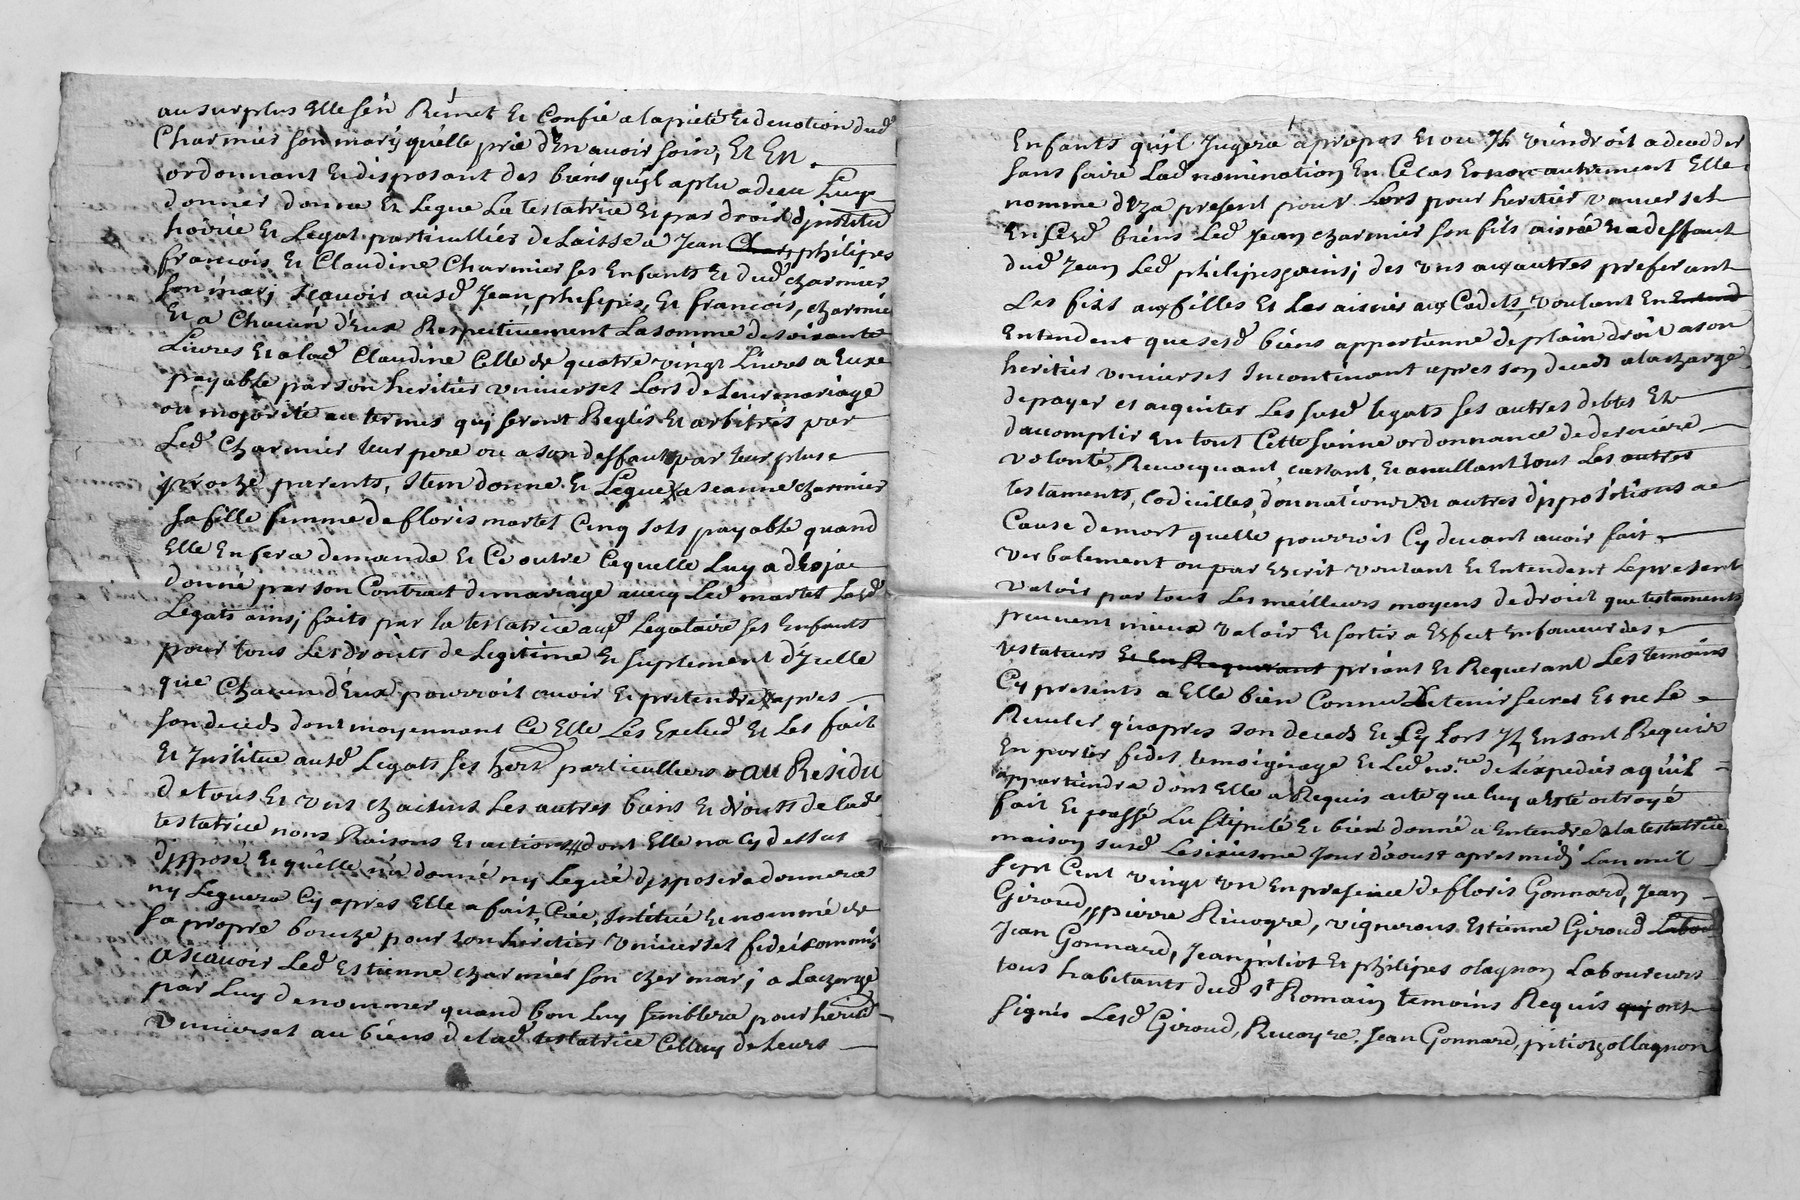 au surplus Elle s'en Remet Et Confie a la pieté Et devotion dud
Charmier son mary quelle prie d'En avoir soin, Et En
ordonnant Et disposant des biens quyl a plu a dieu Luy
donner donne Et Legue La testatrice Et par droit d'jnstitu͞o
hoirie Et Legat particullier delaisse a Jean Char philipes
francois Et Claudine Charmier ses Enfants Et dud charmier
son mary sçavoir ausd Jean, philipes, Et francois, charmier
Et a Chacun d'Eux Respectivement La somme de soisante
Livres Et a lad Claudine Celle de quatre vingt Livres a Eux
payable par son heritier universel Lors de Leur mariage
ou majorité au termes quj seront Reglés Et arbitrés par
Led Charmier leur pere ou a son deffaut par leur plus
proche parents, Item donne Et Legue a Jeanne charmier
sa fille femme de floris martel Cinq sols payable quand
Elle En fera demande Et Ce outre Ce quelle Luy a desja
donné par son Contract de mariage avecq Led martel Lesd
Legats ainsj faits par la testatrice ausd Legataire ses Enfants
pour tous Les droits de Legitime Et suplement d'jcelle
que Chacun d'Eux pourroit avoir Et pretendre apres
son deceds dont moyennant Ce Elle Les Exclud Et Les fait
Et Institue ausd Legats ses hers particulliers au Residu
de tous Et uns chacuns Les autres biens Et droits de lad
testatrice noms Raisons Et actions dont Elle na Cy dessus
disposé Et quelle na donné ny Legué disposera donnera
ny Leguera Cy apres Elle a fait, Créé, Institué Et nommé de
sa propre bouche pour son heritier universel fideicommis
a scavoir Led Estienne charmier son cher marj a La charge
par Luy de nommer quand bon Luy semblera pour heritier
universel au biens de lad testatrice Celluy de Leurs
Enfants quyl Jugera a propos Et ou Jl viendroit a decedder
sans faire Lad nomination En Ce Cas Et non autrement Elle
nomme d'Eza present pour Lors pour heritier universel
En sesd biens Led Jean charmier son fils aisné Et a deffaut
dud Jean Led philipes, ainsj des uns aux autres preferant
Les fils aux filles Et Les aisnés aux Cadets, voulant En Entend
Entendent que sesd biens appartienne de plain droit a son
heritier universel Incontinant apres son deceds a la charge
de payer Et acquiter Les susd legats ses autres debtes Et
d'accomplir En tout Cette sienne ordonnance de derniere
volonté, Revocquant, cassant, Et anullant tous Les autres
testaments, Codicilles, donnations Et autres dispositions a
Cause de mort quelle pourroit Cy devant avoir fait
verbalement ou par Escrit voulant Et Entendent Le present
valoir par tous Les meilleurs moyens de droit que testaments
peuvent mieux valoir Et sortir a Effect En faveur des
testateurs Et En Requerant priant Et Requerant Les temoins
Cy presents a Elle bien Connu de tenir secret Et ne Le
Reveler quapres son deceds Et Sy Lors Jls En sont Requis
En porter fidel temoignage Et Led no.re de L'expedier a quil
appartiendra dont Elle a Requis acte que luy a Esté octroyé
fait Et passé Lu stipulé Et bien donné a Entendre a la testatrice
maison susd Le sixiesme Jour d'aoust apres midj Lan mil
sept Cent vingt un En presence de floris Gonnard, Jean
Giroud, pierre Rivoyre, vignerons Estienne Giroud Labou
Jean Gonnard, Jean pitiot Et philipes olagnon Laboureurs
tous habitants dud St Romain temoins Requis quj ont
signés Lesd Giroud, Rivoyre, Jean Gonnard, pitiot, ollagnon